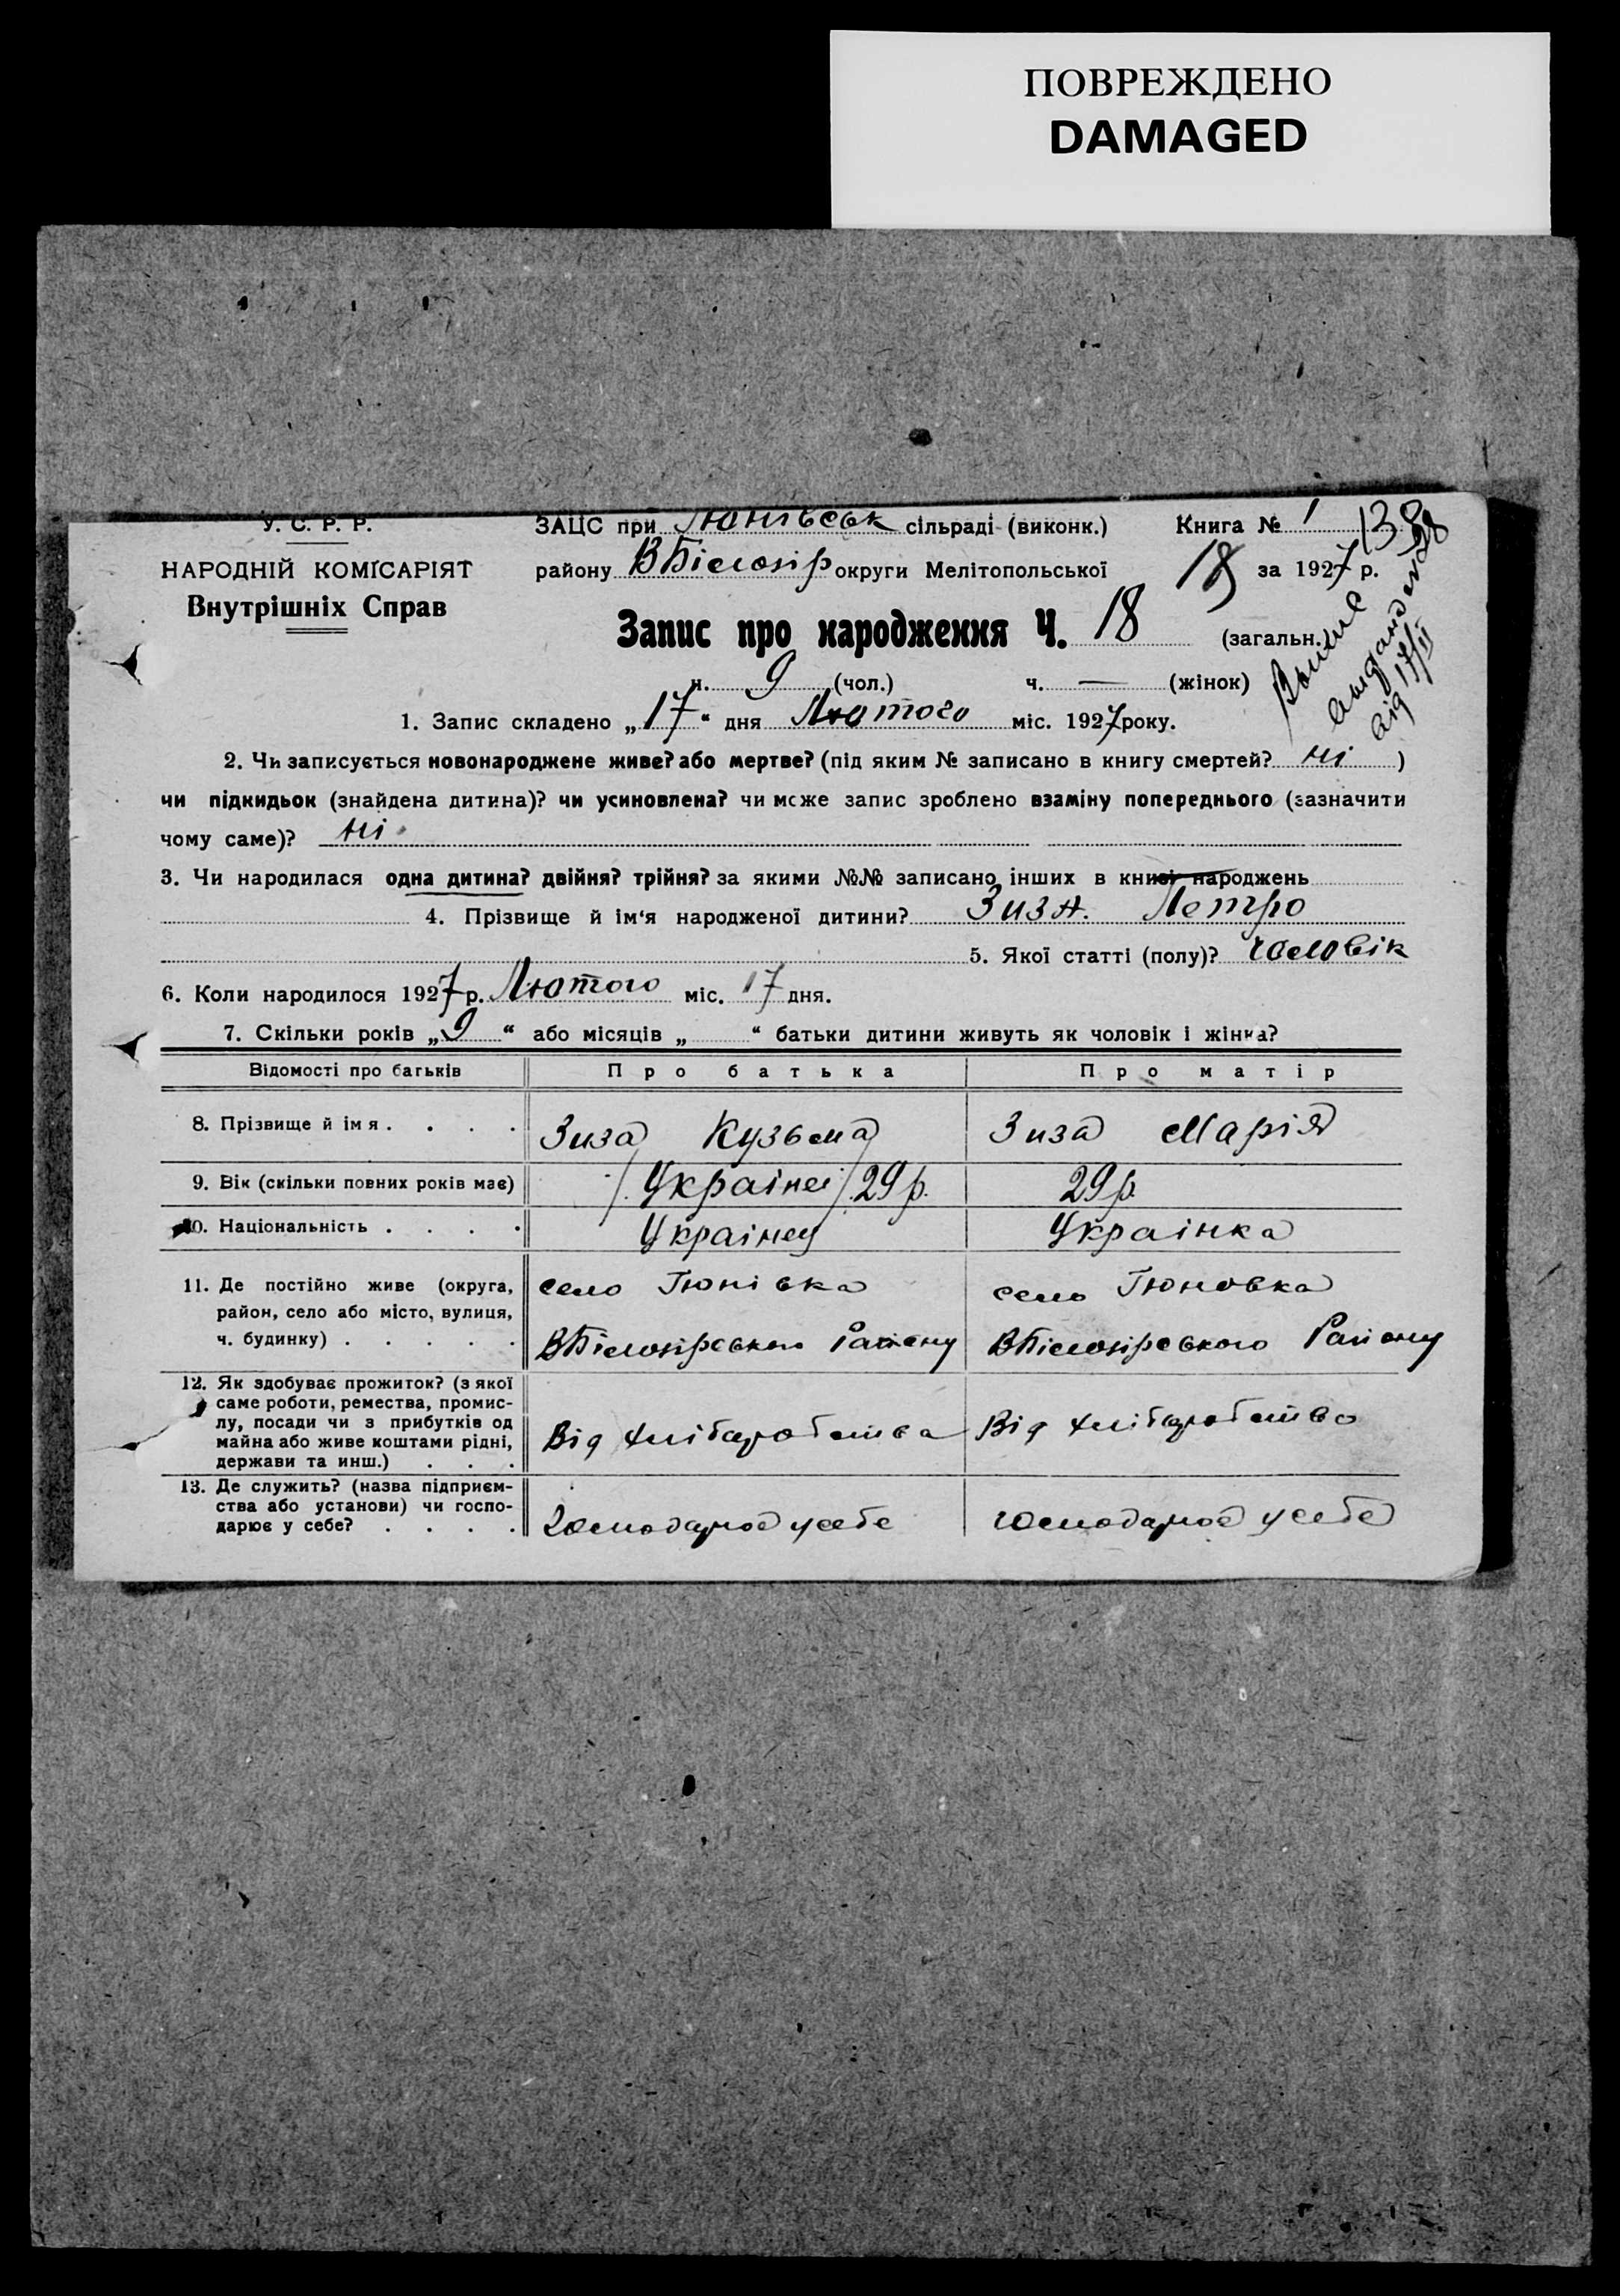 ПОВРЕЖДЕНО
DAMAGED
У. С. Р. Р.
НАРОДНІЙ КОМІСАРІЯТ
Внутрішніх Справ
ЗАЦС при Тюнівськ сільраді (виконк.) Книга № 1 138
району ВБілозір округи Мелітопольської 18 за 1927 р.
Запис про народження Ч. 18 (загальн.)
ч. 9 (чол.) ч. — (жінок)
від 17/II
1. Запис складено „17“ дня Лютого міс. 1927 року.
2. Чи записується новонароджене живе? або мертве? (під яким № записано в книгу смертей? ні )
чи підкидьок (знайдена дитина)? чи усиновлена? чи може запис зроблено взаміну попереднього (зазначити
чому саме)? ні
3. Чи народилася одна дитина? двійня? трійня? за якими №№ записано інших в книзі народжень
4. Прізвище й ім‘я народженої дитини? Зиза. Петро
5. Якої статті (полу)? Чоловік
6. Коли народилося 1927 р. Лютого міс. 17 дня.
7. Скільки років „9“ або місяців „ “ батьки дитини живуть як чоловік і жінка?
Відомості про батьків Про батька Про матір
8. Прізвище й імя . . . . Зиза Кузьма Зиза Марія
9. Вік (скільки повних років має) /Украінец/ 29 р. 29 р.
10. Національність . . . . Украінец Украінка
11. Де постійно живе (округа, село Тюнівка село Тюновка
район, село або місто, вулиця,
ч. будинку) . . . . . ВБілозірського Району ВБілозірського Району
12. Як здобуває прожиток? (з якої
саме роботи, ремества, промис-
лу, посади чи з прибутків од
майна або живе коштами рідні, Від хліборобства Від хліборобства
держави та инш.) . . .
13. Де служить? (назва підприєм-
ства або установи) чи госпо-
дарює у себе? . . . . Господарює у себе Господарює у себе